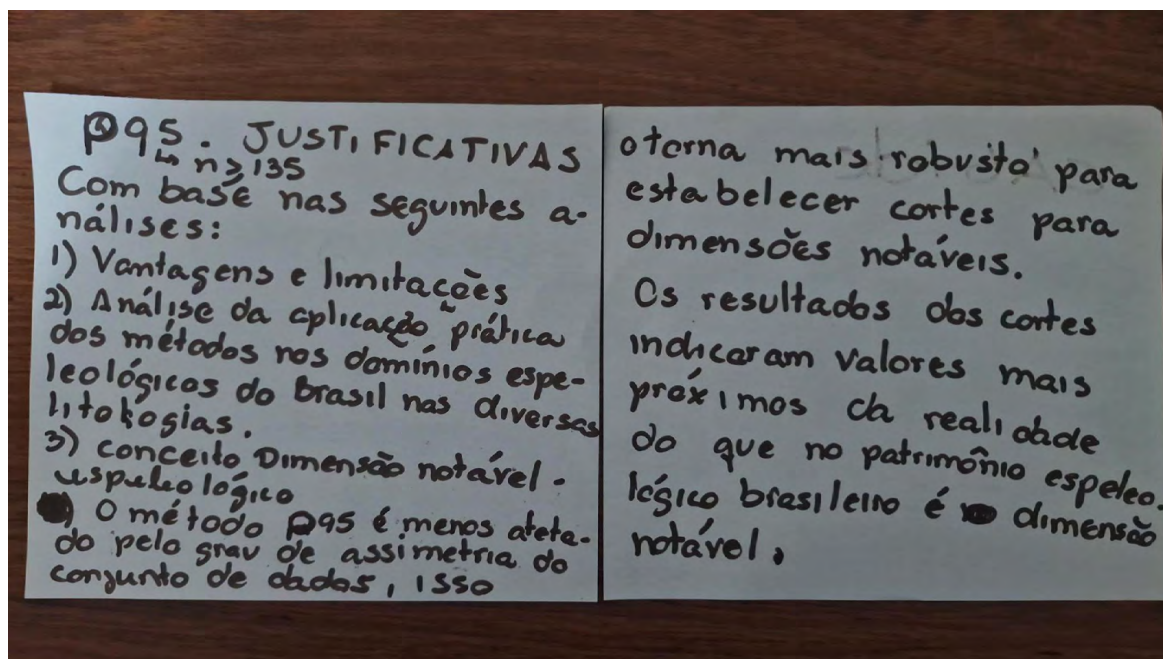 P95. JUSTIFICATIVAS
↳ n≥135
Com base nas seguintes a-
nálises:
1) Vantagens e limitações
2) Análise da aplicação prática
dos métodos nos domínios espe-
leológicos do Brasil nas diversas
litologias.
3) conceito Dimensão notável -
espeleológico
) O método P95 é menos afeta-
do pelo grau de assimetria do
conjunto de dados, isso
o torna mais robusto para
estabelecer cortes para
dimensões notáveis.
Os resultados dos cortes
indicaram valores mais
próximos da realidade
do que no patrimônio espeleo-
lógico brasileiro é dimensão
notável.